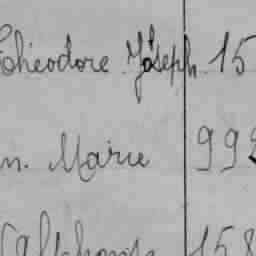 Théodore Joseph 15
n. Marie 992
158